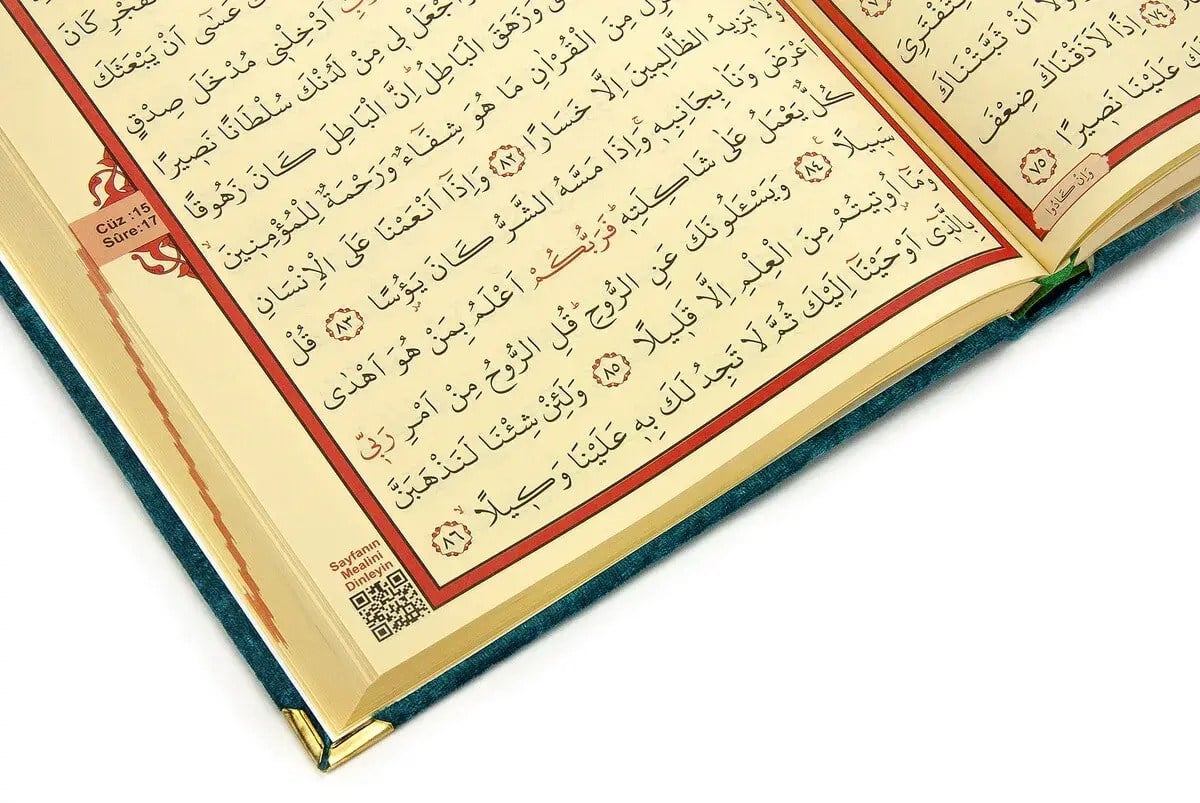 اَنْ ثَبَّتْنَاكَ
٧٤ اِذًا لَاَذَقْنَاكَ ضِعْفَ
عَلَيْنَا نَصٖيرًا ٧٥
وَاِنْ كَادُوا
كَانَ
عَسٰٓى اَنْ يَبْعَثَكَ
اَدْخِلْنٖى مُدْخَلَ صِدْقٍ
وَاجْعَلْ لٖى مِنْ لَدُنْكَ سُلْطَانًا نَصٖيرًا
وَزَهَقَ الْبَاطِلُ اِنَّ الْبَاطِلَ كَانَ زَهُوقًا
مِنَ الْقُرْاٰنِ مَا هُوَ شِفَٓاءٌ وَرَحْمَةٌ لِلْمُؤْمِنٖينَ
وَلَا يَزٖيدُ الظَّالِمٖينَ اِلَّا خَسَارًا ٨٢ وَاِذَٓا اَنْعَمْنَا عَلَى الْاِنْسَانِ
اَعْرَضَ وَنَاٰ بِجَانِبِهٖ وَاِذَا مَسَّهُ الشَّرُّ كَانَ يَؤُسًا ٨٣ قُلْ
كُلٌّ يَعْمَلُ عَلٰى شَاكِلَتِهٖ فَرَبُّكُمْ اَعْلَمُ بِمَنْ هُوَ اَهْدٰى
سَبٖيلًا ٨٤ وَيَسْـَٔلُونَكَ عَنِ الرُّوحِ قُلِ الرُّوحُ مِنْ اَمْرِ رَبّٖى
وَمَٓا اُوتٖيتُمْ مِنَ الْعِلْمِ اِلَّا قَلٖيلًا ٨٥ وَلَئِنْ شِئْنَا لَنَذْهَبَنَّ
بِالَّذٖٓى اَوْحَيْنَٓا اِلَيْكَ ثُمَّ لَا تَجِدُ لَكَ بِهٖ عَلَيْنَا وَكٖيلًا ٨٦
Cüz :15
Sûre:17
Sayfanın
Mealini
Dinleyin